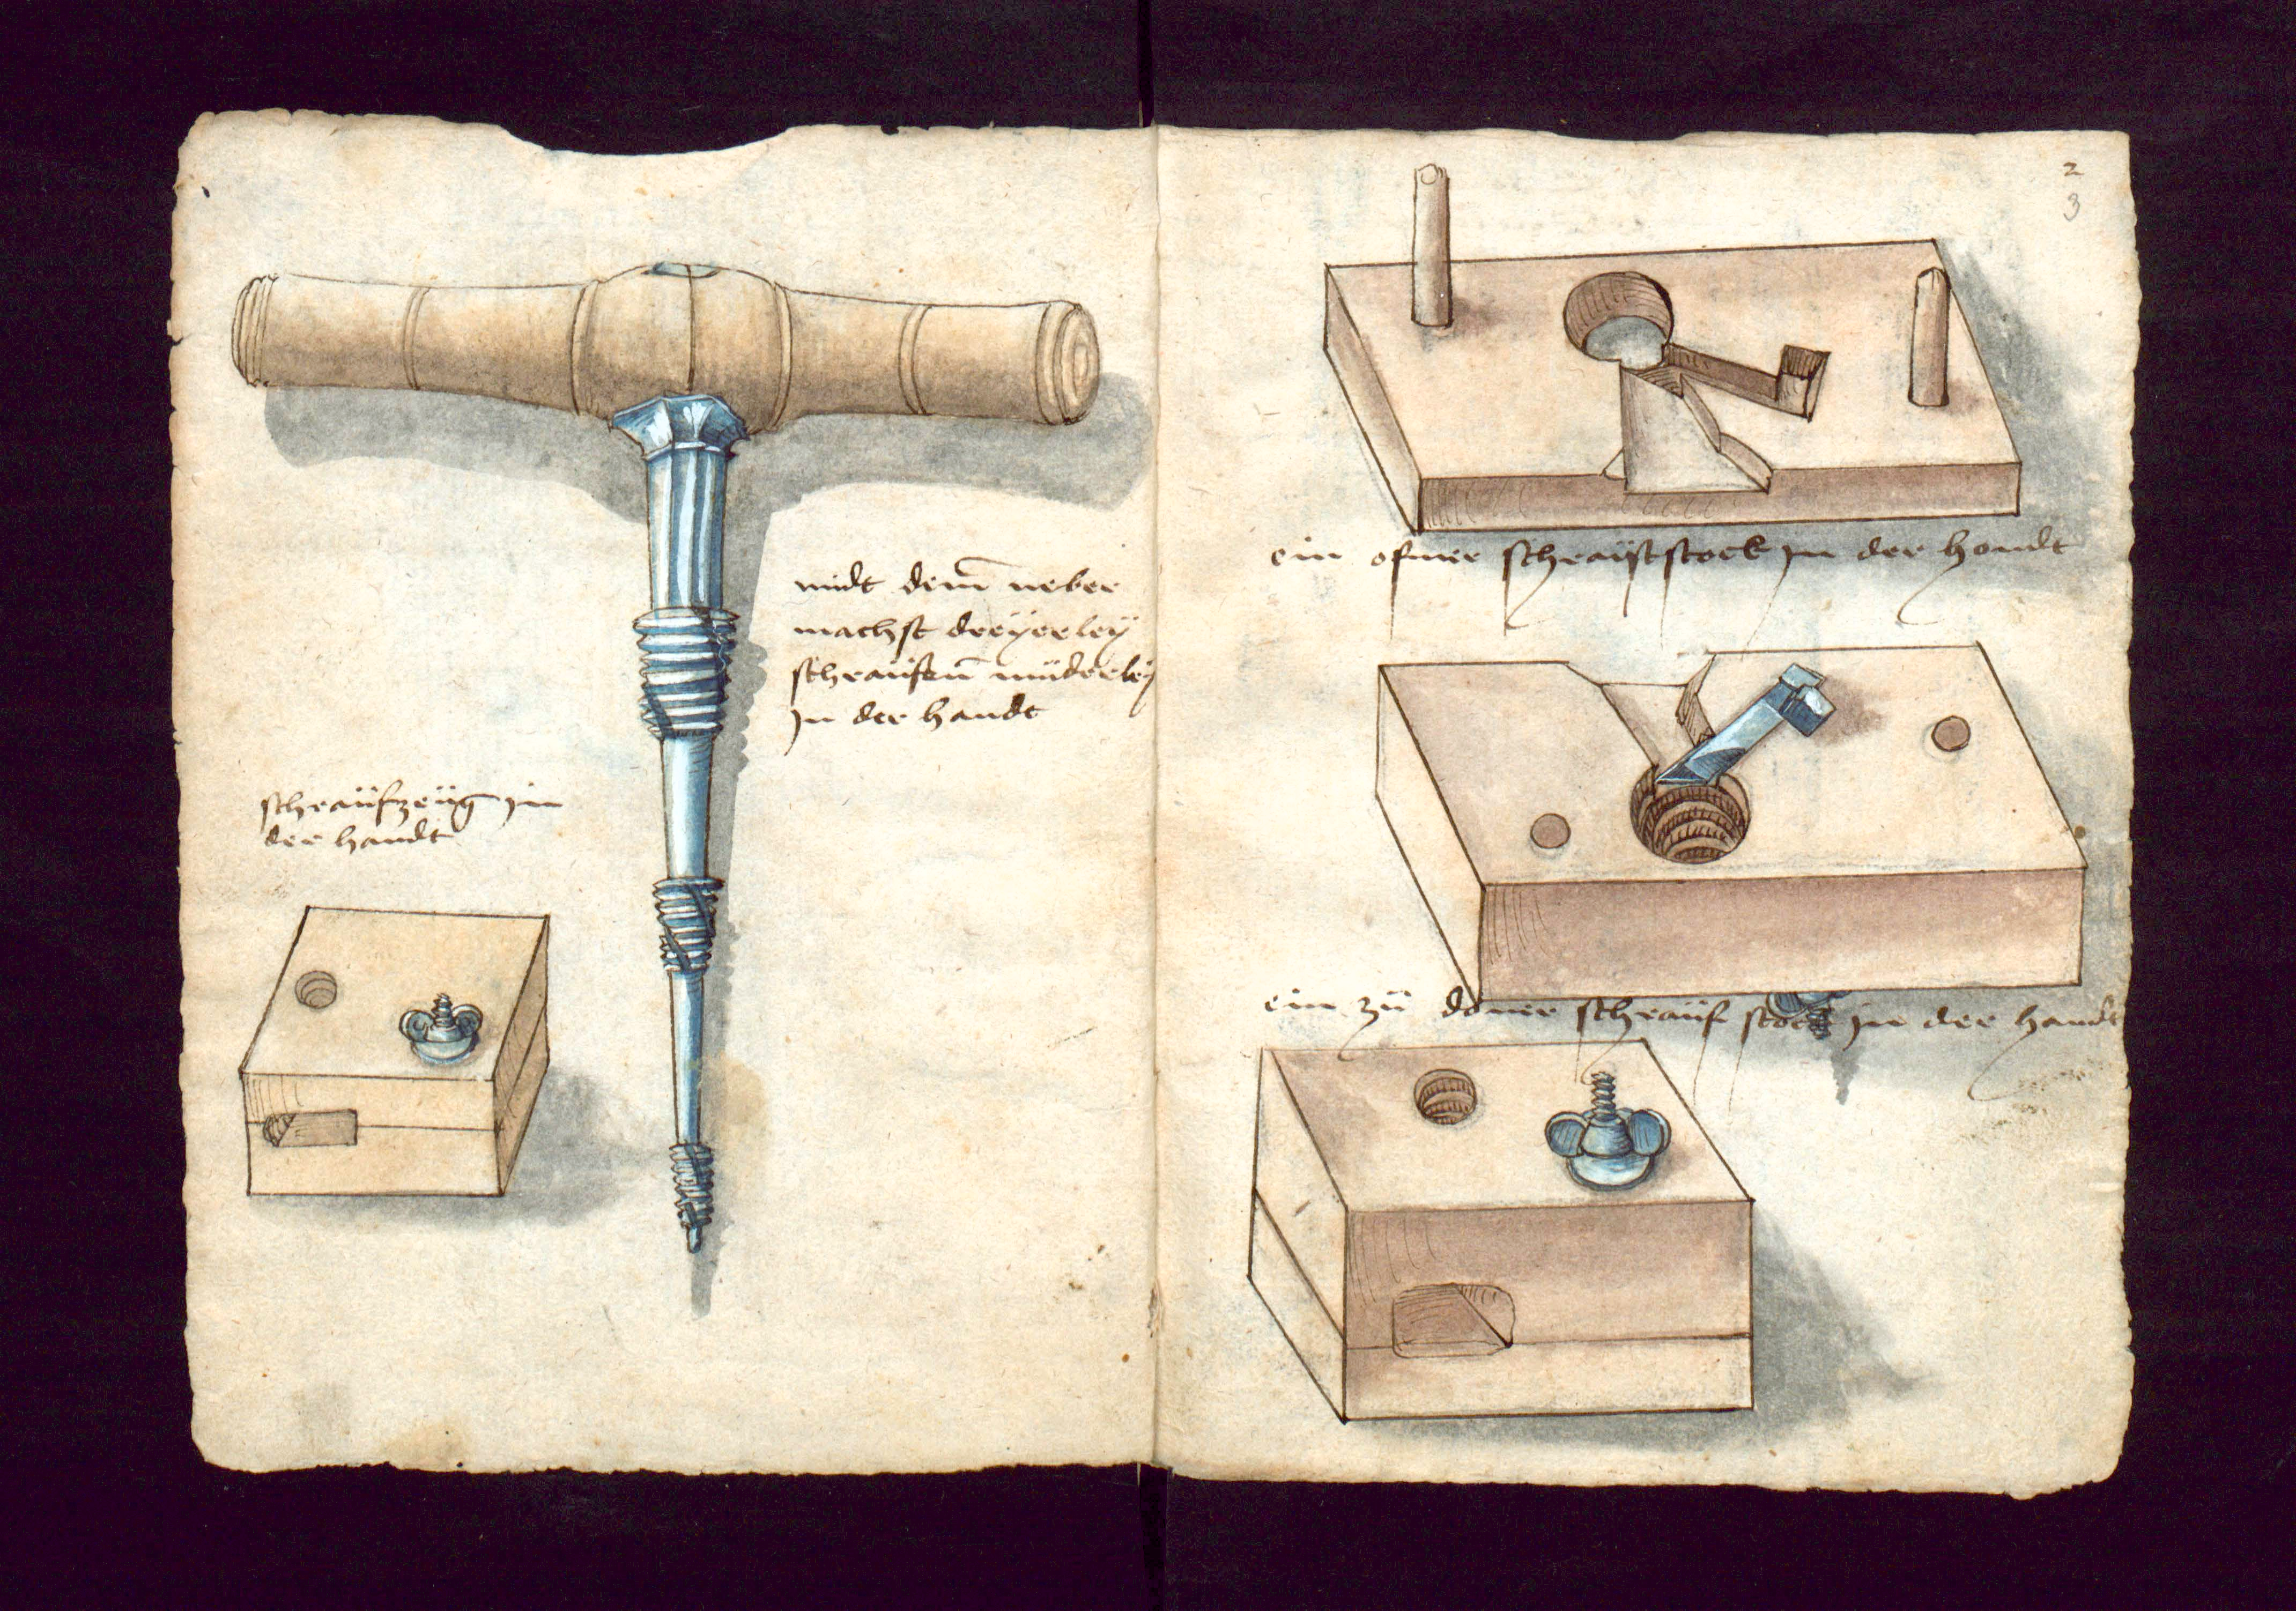 midt dem̄ neber
machst dreÿerleÿ
schraüfen̄ müderleÿ
jn der handt
schraüfzeüg jn
der handt
2
3
ein ofner schraüfstock jn der handt
ein zü doner schraüf stock jn der handt